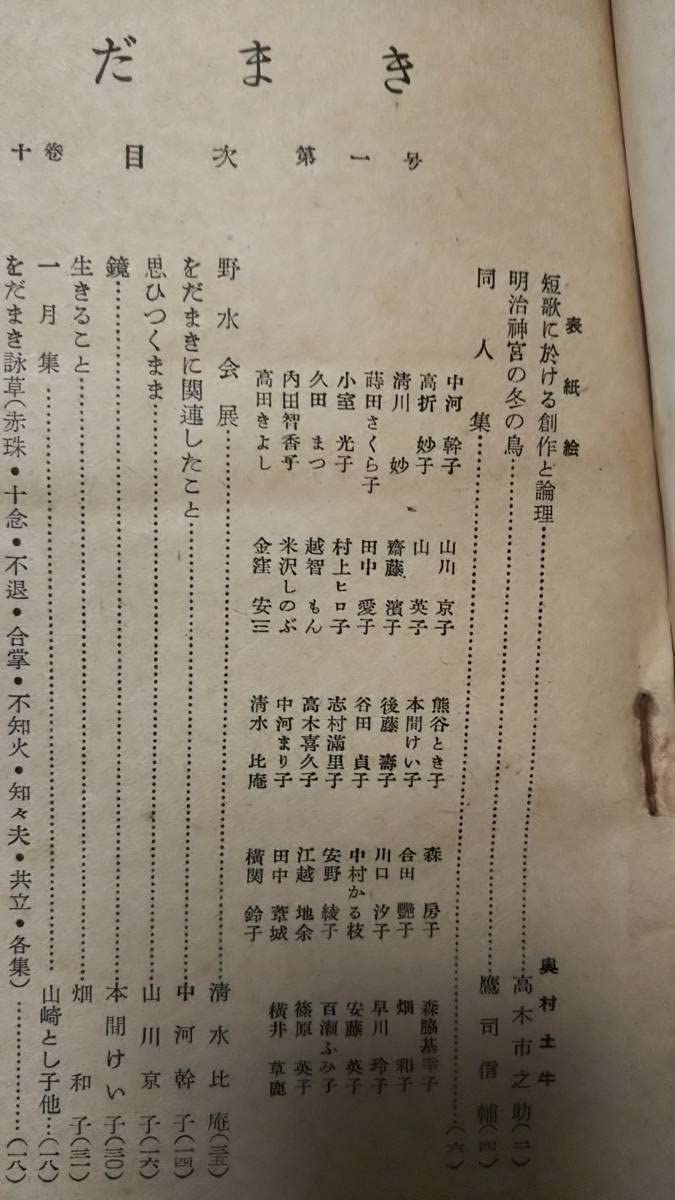 だまき
十巻 目次 第一号
表紙絵 奥村土牛
短歌に於ける創作と論理 高木市之助(二)
明治神宮の冬の鳥 鷹司信輔(四)
同人集 (六)
中河幹子 山川京子 熊谷とき子 森房子 森脇基幸子
高折妙子 山英子 本間けい子 合田艶子 畑和子
清川妙 齋藤濱子 後藤壽子 川口汐子 早川玲子
蒔田さくら子 田中愛子 谷田貞子 中村かる枝 安藤英子
小室光子 村上ヒロ子 志村満里子 安野綾子 百瀬ふみ子
久田まつ 越智もん 高木喜久子 江越地余 篠原英子
内田智香子 米沢しのぶ 中河まり子 田中葦城 横井草鹿
高田きよし 金窪安三 清水比庵 横関鈴子
野水会展 清水比庵(三五)
をだまきに関連したこと 中河幹子(一四)
思ひつくまま 山川京子(一六)
鏡 本間けい子(三〇)
生きること 畑和子(三一)
一月集 山崎とし子他(一八)
をだまき詠草(赤珠・十念・不退・合掌・不知火・知々夫・共立・各集) (一八)